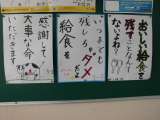 おいしい給食を
残すことなんて
ないよね？
いつまでも
残しちゃ
ダメ
給食を
感謝して
大事な命
いただきます